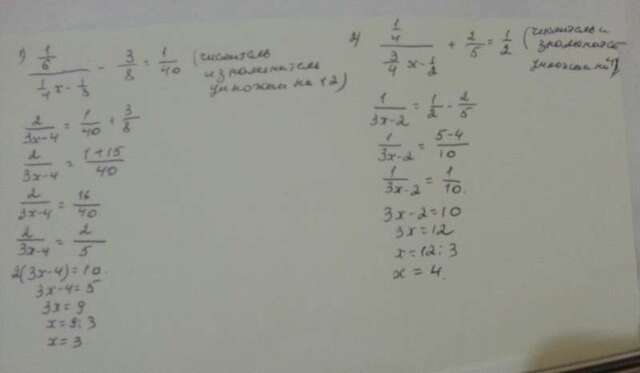 1) (1/6)/(1/4 x - 1/3) - 3/8 = 1/40 (числитель
и знаменатель
умножим на 12)
2/(3x-4) = 1/40 + 3/8
2/(3x-4) = (1+15)/40
2/(3x-4) = 16/40
2/(3x-4) = 2/5
2(3x-4)=10
3x-4=5
3x=9
x=9:3
x=3
2) (1/4)/(3/4 x - 1/2) + 2/5 = 1/2 (числитель и
знаменатель
умножим на 4)
1/(3x-2) = 1/2 - 2/5
1/(3x-2) = (5-4)/10
1/(3x-2) = 1/10.
3x-2=10
3x=12
x=12:3
x=4.